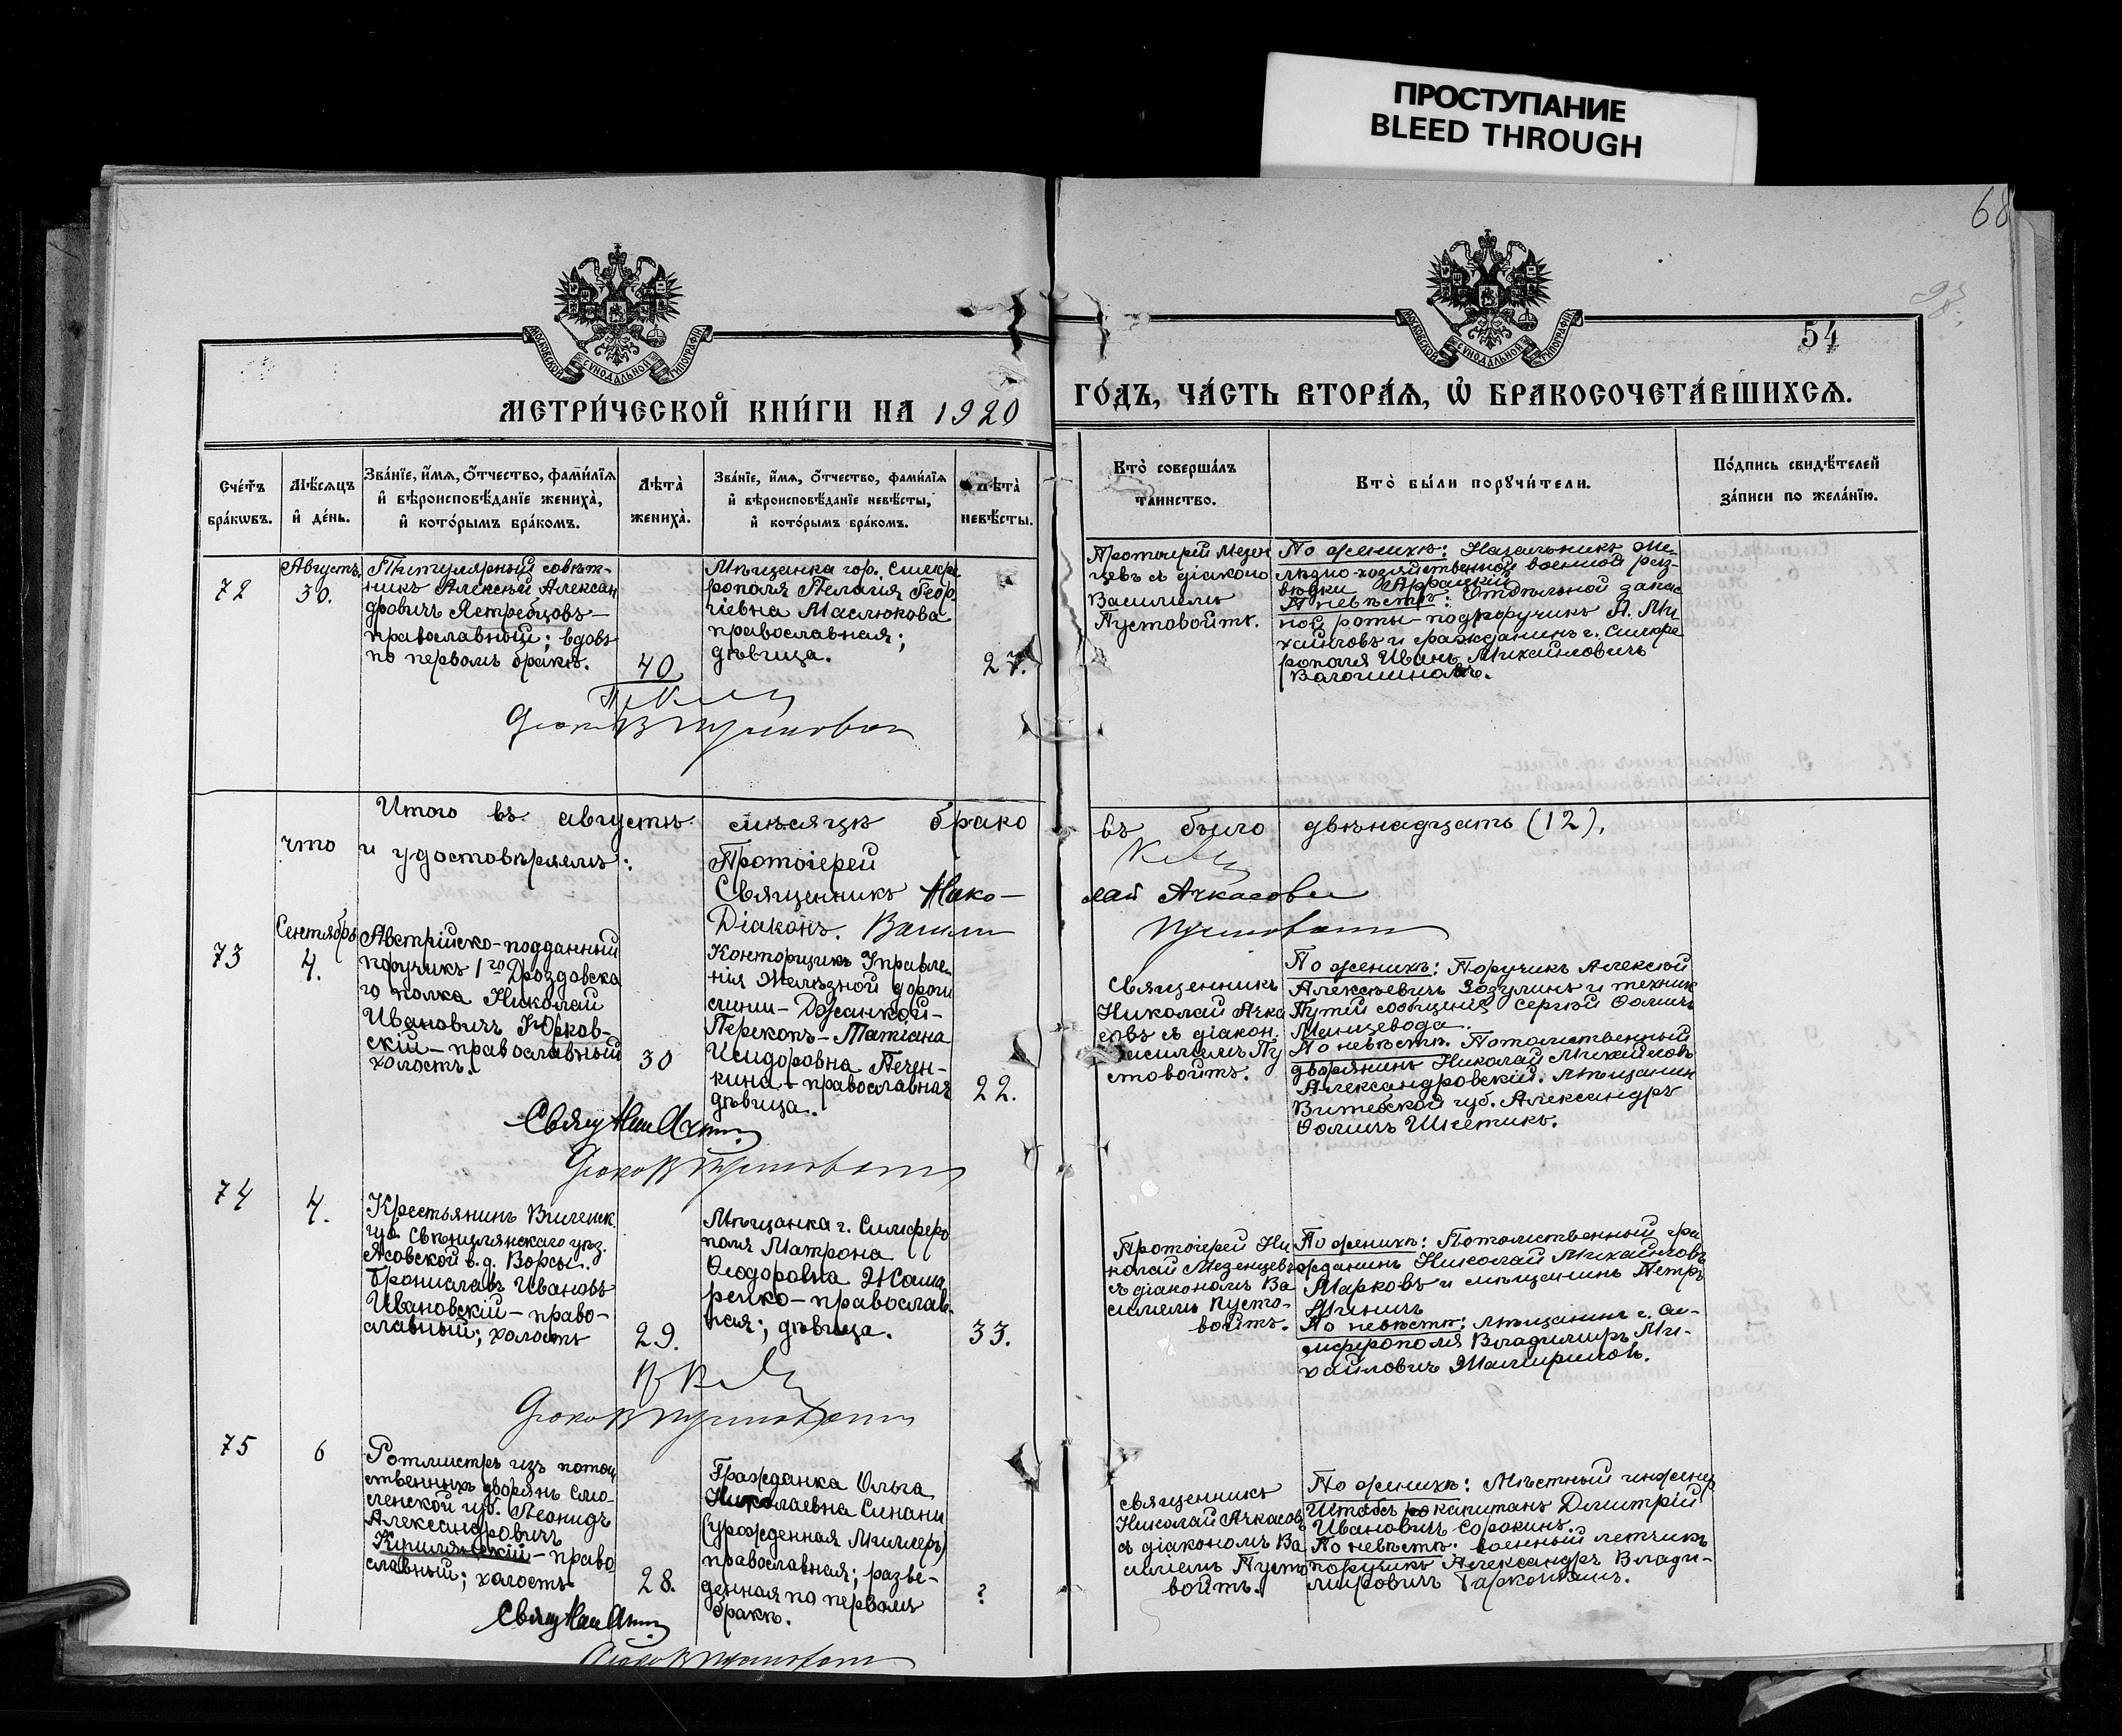 ПРОСТУПАНИЕ
BLEED THROUGH
68
54
МОСКОВСКОЙ СѴНОДАЛЬНОЙ ТИПОГРАФІИ
МОСКОВСКОЙ СѴНОДАЛЬНОЙ ТИПОГРАФІИ
МЕТРИ́ЧЕСКОЙ КНИ́ГИ НА 1920
ГО́ДЪ, ЧА́СТЬ ВТОРА́Я, Ѡ҆ БРАКОСОЧЕТА́ВШИХСЯ.
Сче́тъ
бра́кѡвъ.
Мѣ́сяцъ
и҆ де́нь.
Зва́нїе, и҆́мя, ѻ҆́тчество, фами́лїя
и҆ вѣроисповѣ́данїе жениха̀,
и҆ кото́рымъ бра́комъ.
Лѣта̀
жениха̀.
Зва́нїе, и҆́мя, ѻ҆́тчество, фами́лїя
и҆ вѣроисповѣ́данїе невѣ́сты,
и҆ кото́рымъ бра́комъ.
Лѣта̀
невѣ́сты.
Кто̀ соверша́лъ
таинство.
Кто̀ бы́ли порꙋчи́тели.
По́дпись свидѣ́телей
за́писи по жела́нїю.
72
Августъ.
30.
Титулярный совѣт-
никъ Алексѣй Алексан
дровичъ Ястребцовъ –
православный; вдовъ
по первомъ бракѣ.
40
Мѣщанка гор. Симфе
рополя Пелагія Геор
гіевна Маслюкова
православная;
дѣвица.
27.
Протоіерей Мезен
цевъ съ діаконо
Василіемъ
Пустовойтъ.
По женихѣ: Начальникъ же-
лѣзно-хозяйственной военной раз-
вѣдки
По невѣстѣ: Отдѣльной запас
ной роты – подпоручикъ А. Ми
хайловъ и гражданинъ г. Симфе
рополя Иванъ Михайловичъ
Волошиновъ.
Итого въ августѣ мѣсяцѣ брако
въ было двѣнадцать (12),
что и удостовѣряемъ:
Протоіерей
Священникъ Нико-
лай Ачкасовъ
Діаконъ. Василій
Пустовойтъ
73
Сентябрь
4.
Австрійско-подданный
поручикъ 1го Дроздовска
го полка Николай
Ивановичъ Юрков-
скій – православный
холостъ.
30
Конторщикъ Управле-
нія Желѣзной дороги
линіи – Джанкой –
Перекопъ – Татіана
Исидоровна Печен-
кина – православная
дѣвица.
22.
Священникъ
Николай Ачка
совъ съ діакон.
Василіемъ Пу
стовойтъ.
По женихѣ: Поручикъ Алексѣй
Алексѣевичъ Зозулинъ и техникъ
Путей сообщенія Сергѣй Ѳомичъ
По невѣстѣ. Потомственный
дворянинъ Николай Михайловъ
Александровскій. Мѣщанин
Витебской губ. Александръ
Ѳомичъ
74
4.
Крестьянинъ Виленск.
губ. Свѣнцянскаго уѣз.
Ясовской в. д. Ворсы.
Брониславъ Ивановъ
Ивановскій – право-
славный; холостъ
29.
Мѣщанка г. Симферо
поля Матрона
Ѳеодоровна Жома
ренко – православ-
ная; дѣвица.
33.
Протоіерей Ни
колай Мезенцевъ
съ діакономъ Ва
силіемъ Пусто-
войтъ.
По женихѣ: Потомственный гра
жданинъ Николай Михайловъ
Марковъ и мѣщанинъ Петръ
По невѣстѣ: мѣщанинъ г. Си-
мферополя Владимиръ Ми-
хайловичъ
75
6
Ротмистръ изъ потом
ственныхъ дворянъ Смо-
ленской губ. Леонидъ
Александровичъ
Кимлянскій – право
славный; холостъ
28.
Гражданка Ольга
Николаевна Синани
(урожденная Миллеръ)
православная; разве-
денная по первомъ
бракѣ.
?
священникъ
Николай Ачкасовъ
съ діакономъ Ва
силіемъ Пусто
войтъ.
По женихѣ: Мѣстный инженер
Штабсъ капитанъ Димитрій
Ивановичъ Сорокинъ.
По невѣстѣ: военный летчикъ
поручикъ Александръ Влади-
мировичъ